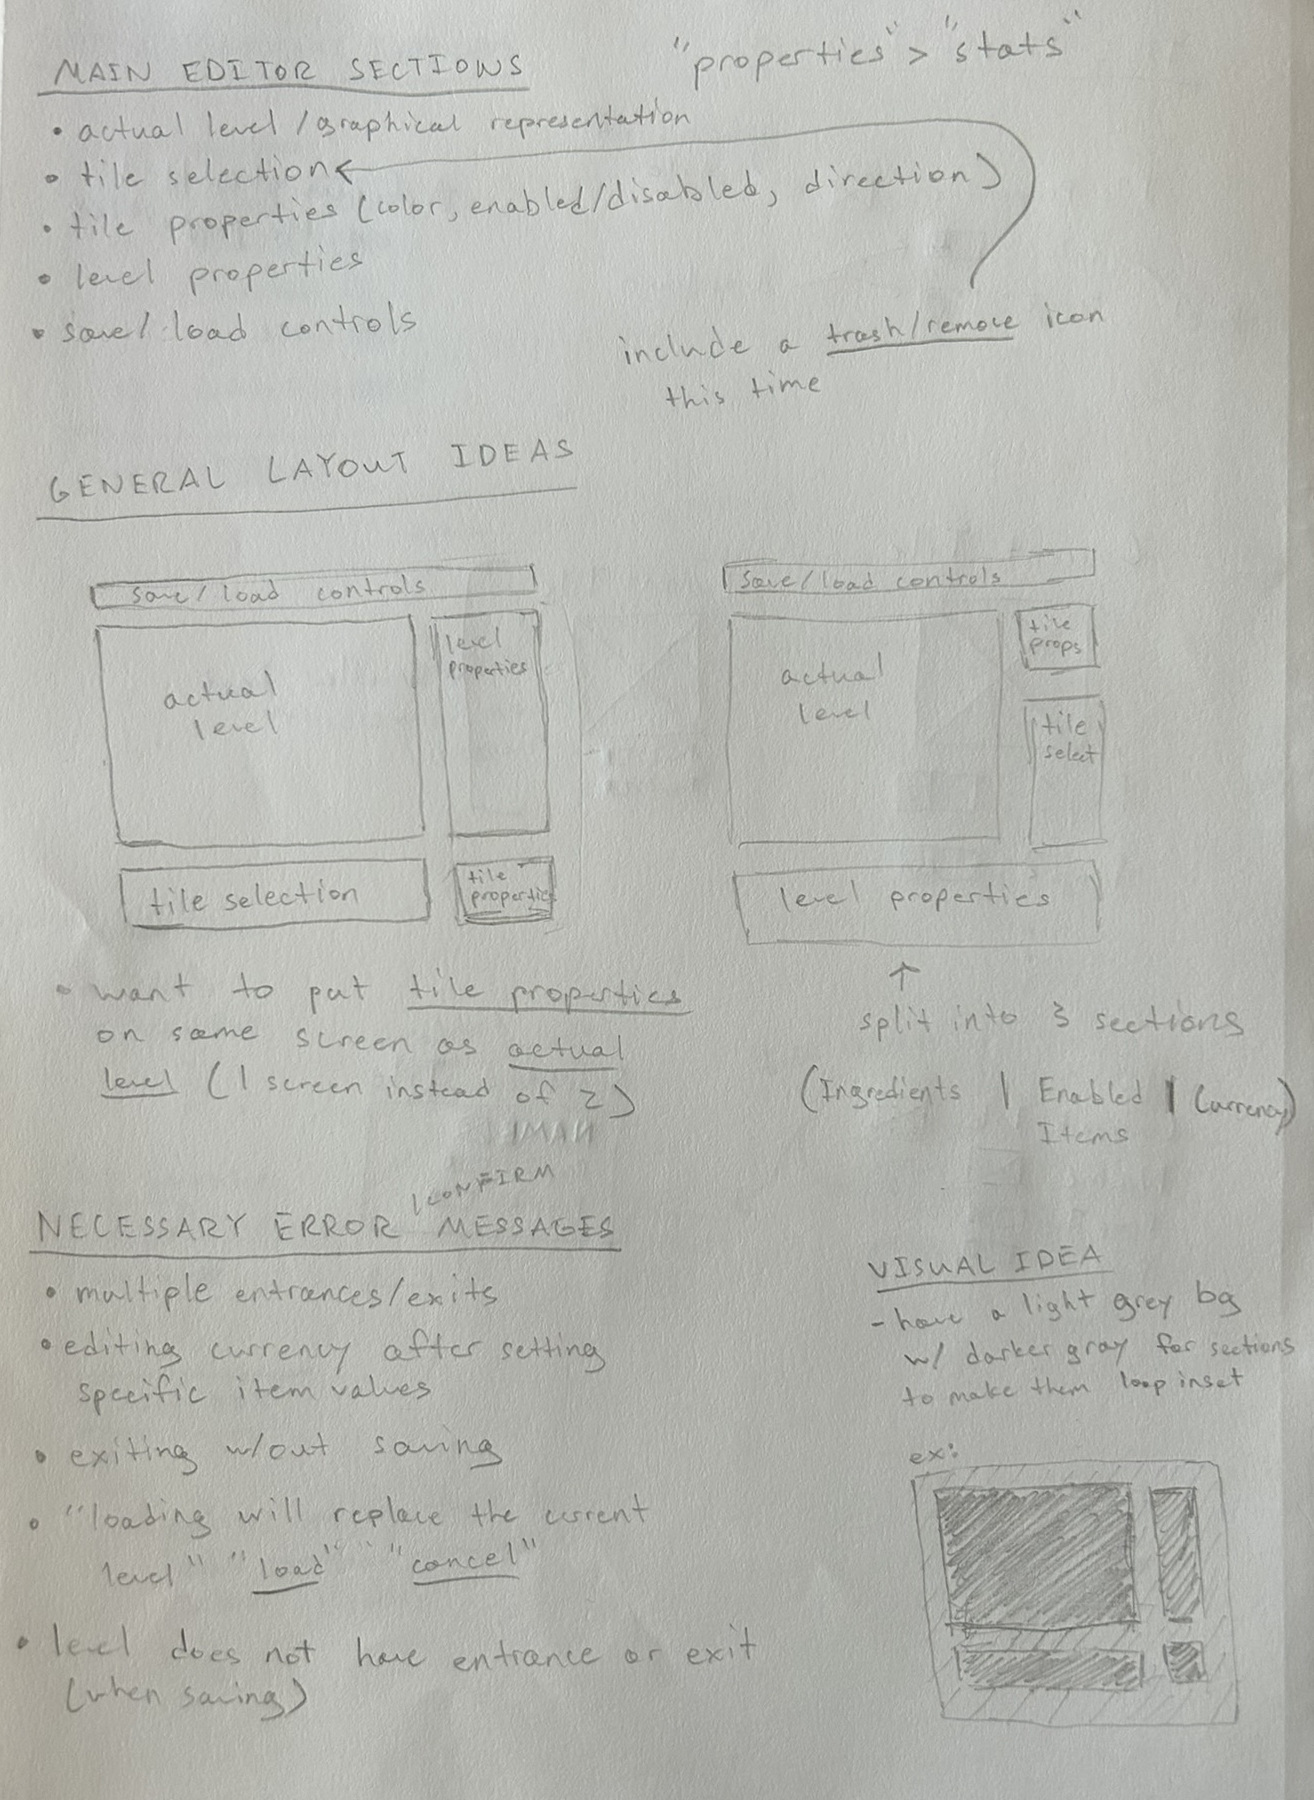 "properties" > "stats"
MAIN EDITOR SECTIONS
• actual level/graphical representation
• tile selection
• tile properties (color, enabled/disabled, direction)
• level properties
• save/load controls
include a trash/remove icon
this time
GENERAL LAYOUT IDEAS
save/load controls
actual
level
level
properties
tile selection
tile
properties
save/load controls
actual
level
tile
props
tile
select
level properties
• want to put tile properties
on same screen as actual
level (1 screen instead of 2)
split into 3 sections
(Ingredients | Enabled | Currency)
Items
/CONFIRM
NECESSARY ERROR MESSAGES
• multiple entrances/exits
• editing currency after setting
specific item values
• exiting w/out saving
• "loading will replace the current
level" "load" "cancel"
• level does not have entrance or exit
(when saving)
VISUAL IDEA
- have a light grey bg
w/ darker gray for sections
to make them loop inset
ex: